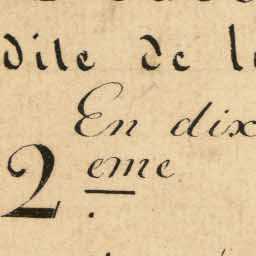 dile de l
En dix
2 eme.